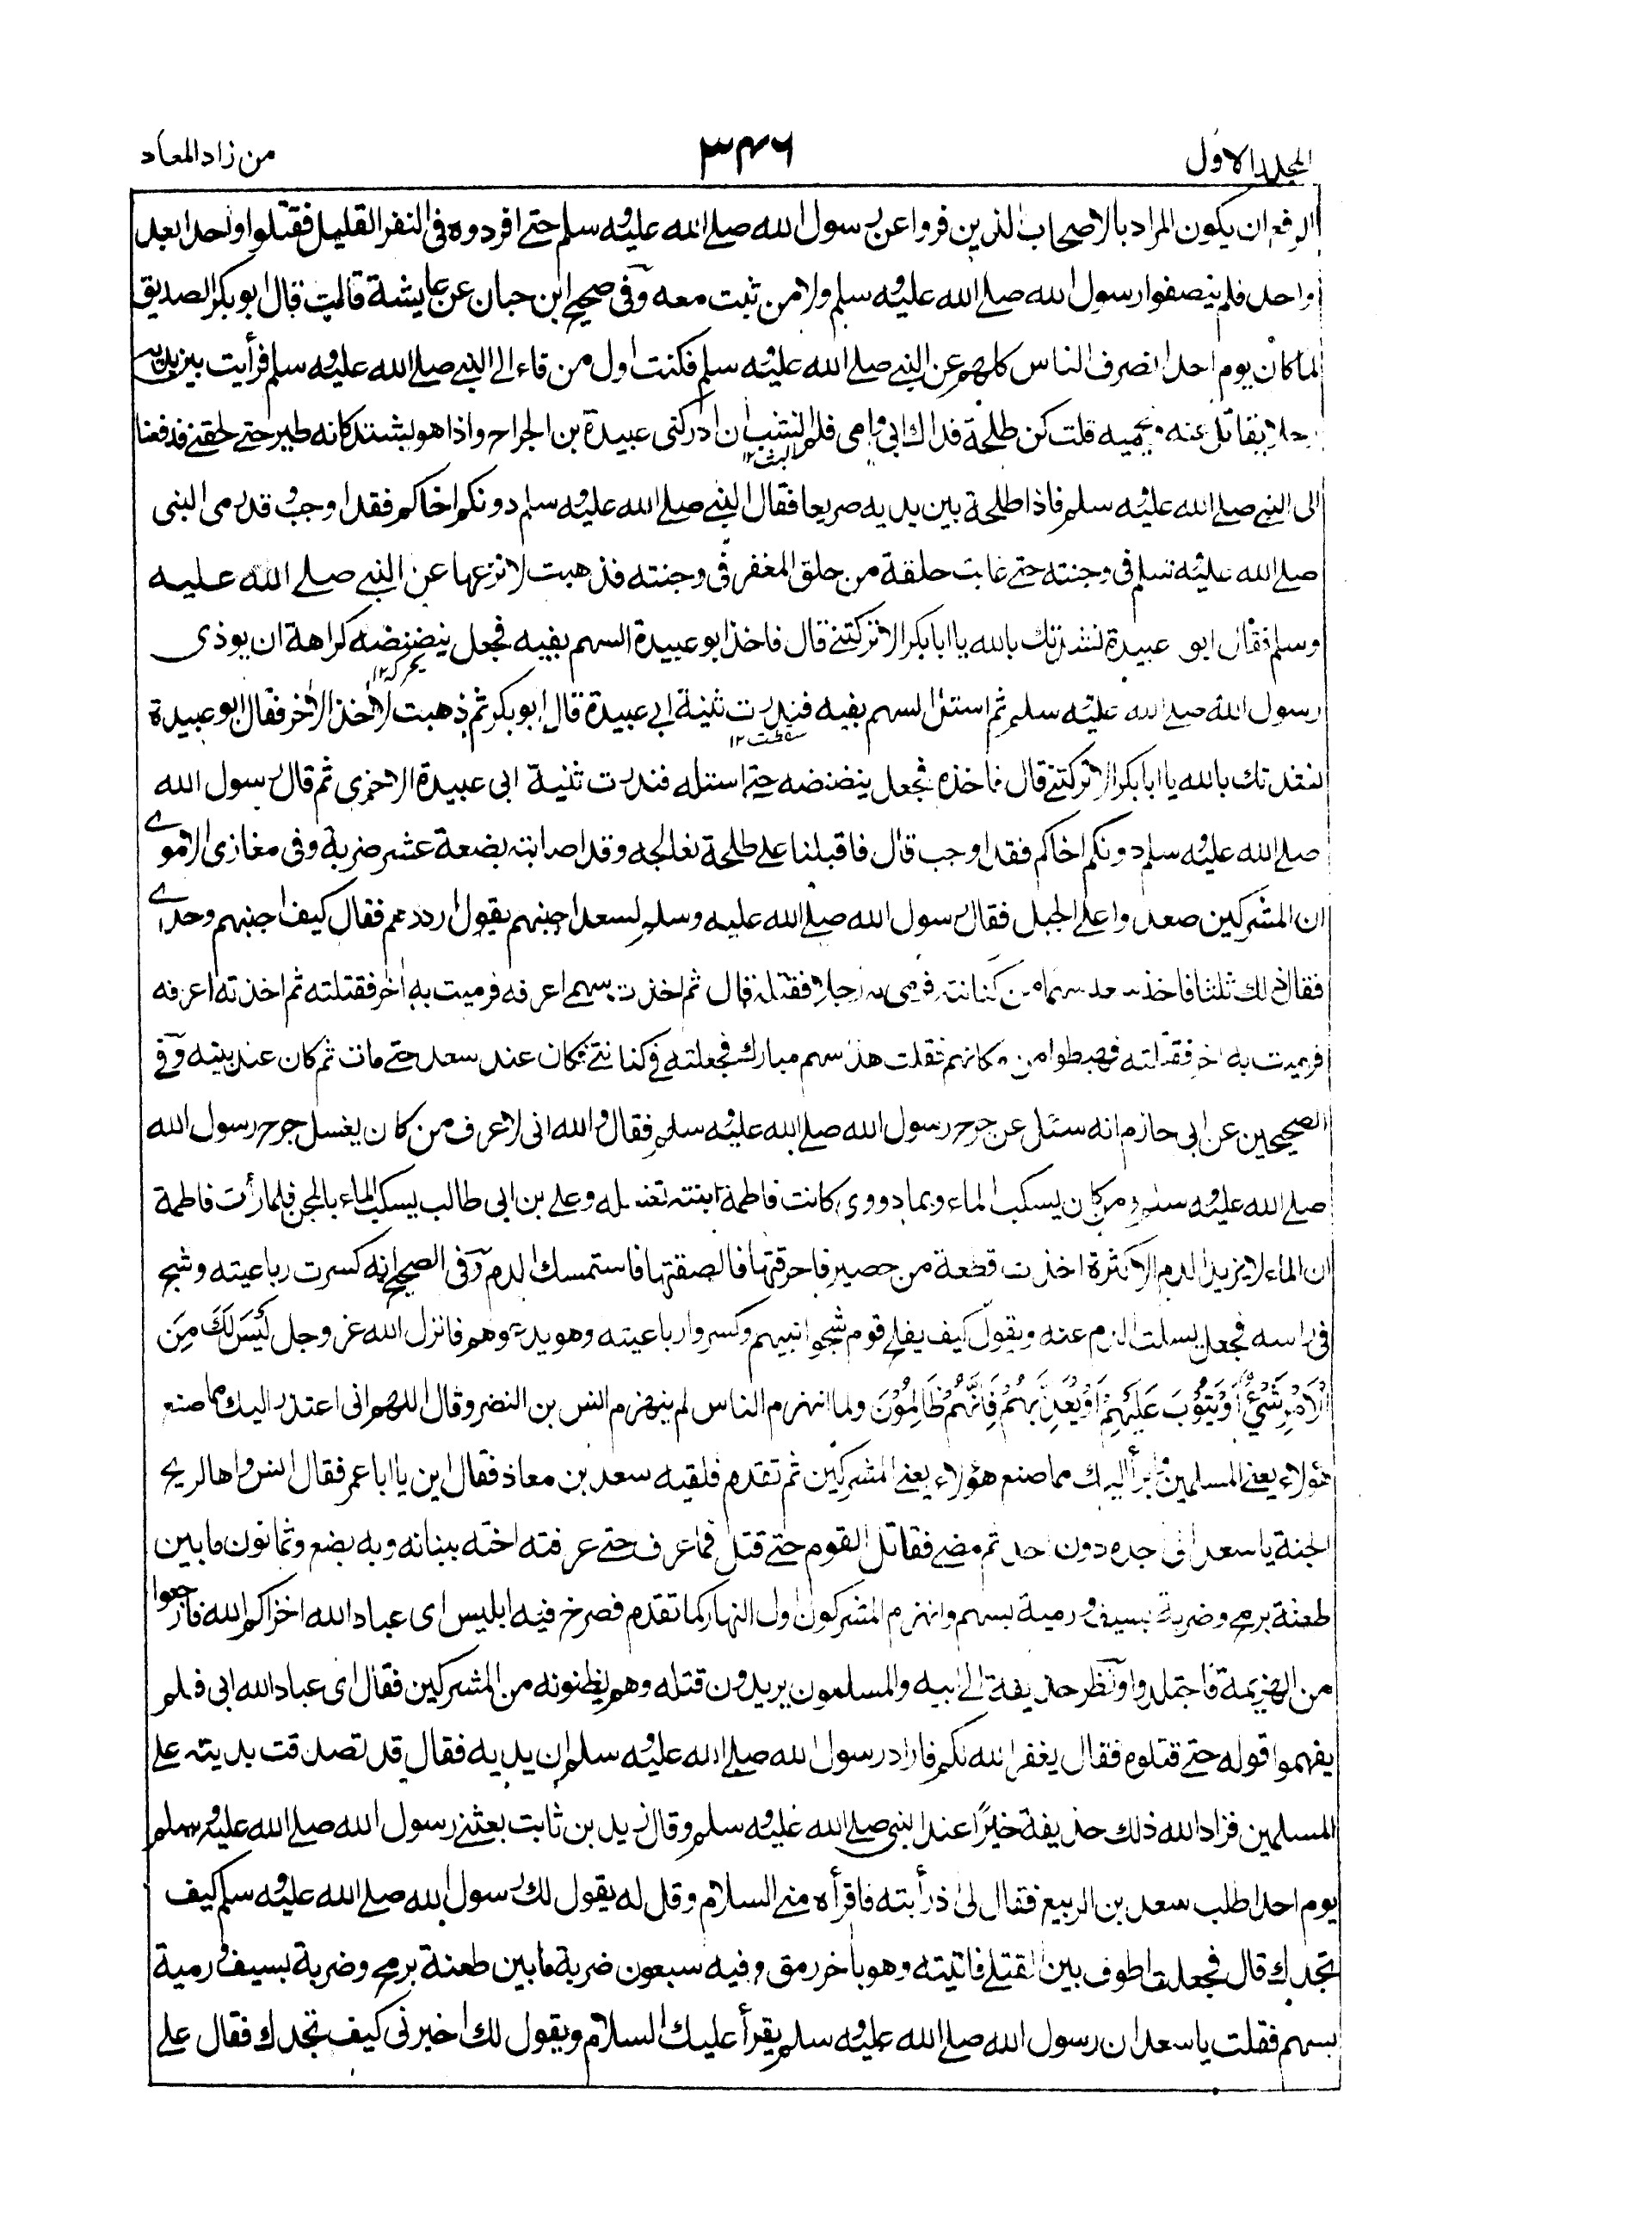 المجلد الاول
٣٤٦
من زاد المعاد
الرفع ان يكون المراد بالاصحاب الذين فروا عن رسول الله صلى الله عليه وسلم حتى افردوه فى النفر القليل فقتلوا واحدا بعد
واحد فلم ينصفوا رسول الله صلى الله عليه وسلم ولا من ثبت معه وفى صحيح ابن حبان عن عايشة قالت قال ابو بكر الصديق
لما كان يوم احد انصرف الناس كلهم عن النبى صلى الله عليه وسلم فكنت اول من فاء الى النبى صلى الله عليه وسلم فرأيت بين يديه
رجلا يقاتل عنه ويحميه قلت كن طلحة فداك ابى وامى فلم انشب ان ادركنى عبيدة بن الجراح واذا هو يشتد كانه طير حتى لحقنى فدفعنا
البث ١٢
الى النبى صلى الله عليه وسلم فاذا طلحة بين يديه صريعا فقال النبى صلى الله عليه وسلم دونكم اخاكم فقد اوجب وقد رمى النبى
صلى الله عليه وسلم فى وجنته حتى غابت حلقة من حلق المغفر فى وجنته فذهبت لانزعها عن النبى صلى الله عليه
وسلم فقال ابو عبيدة نشدتك بالله يا ابا بكر الا تركتنى قال فاخذ ابو عبيدة السهم بفيه فجعل ينضنضه كراهة ان يوذى
يحركه ١٢
رسول الله صلى الله عليه وسلم ثم استل السهم بفيه فندرت ثنية ابى عبيدة قال ابو بكر ثم ذهبت لاخذ الاخر فقال ابو عبيدة
سقطت ١٢
نشدتك بالله يا ابا بكر الا تركتنى قال فاخذه فجعل ينضنضه حتى استله فندرت ثنية ابى عبيدة الاخرى ثم قال رسول الله
صلى الله عليه وسلم دونكم اخاكم فقد اوجب قال فاقبلنا على طلحة نعالجه وقد اصابته بضعة عشر ضربة وفى مغازى الاموى
ان المشركين صعدوا على الجبل فقال رسول الله صلى الله عليه وسلم لسعد اجنبهم يقول ارددهم فقال كيف اجنبهم وحدى
فقال ذلك ثلثا فاخذ سعد سهما من كنانته فرمى به رجلا فقتله قال ثم اخذت بسهمى اعرفه فرميت به اخر فقتلته ثم اخذته اعرفه
فرميت به اخر فقتلته فهبطوا من مكانهم فقلت هذا سهم مبارك فجعلته فى كنانتى فكان عند سعد حتى مات ثم كان عند بنيه وفى
الصحيحين عن ابى حازم انه سئل عن جرح رسول الله صلى الله عليه وسلم فقال والله انى لاعرف من كان يغسل جرح رسول الله
صلى الله عليه وسلم ومن كان يسكب الماء وبما دووى كانت فاطمة ابنته تغسله وعلى بن ابى طالب يسكب الماء بالمجن فلما رأت فاطمة
ان الماء لا يزيد الدم الا كثرة اخذت قطعة من حصير فاحرقتها فالصقتها فاستمسك الدم وفى الصحيح انه كسرت رباعيته وشج
فى راسه فجعل يسلت الدم عنه ويقول كيف يفلح قوم شجوا نبيهم وكسروا رباعيته وهو يدعوهم فانزل الله عز وجل لَيْسَ لَكَ مِنَ
الْاَمْرِ شَيْءٌ اَوْ يَتُوْبَ عَلَيْهِمْ اَوْ يُعَذِّبَهُمْ فَاِنَّهُمْ ظَالِمُوْنَ ولما انهزم الناس لم ينهزم انس بن النضر وقال اللهم انى اعتذر اليك مما صنع
هؤلاء يعنى المسلمين وابرأ اليك مما صنع هؤلاء يعنى المشركين ثم تقدم فلقيه سعد بن معاذ فقال اين يا ابا عمر فقال انس واها لريح
الجنة يا سعد انى اجده دون احد ثم مضى فقاتل القوم حتى قتل فما عرف حتى عرفته اخته ببنانه وبه بضع وثمانون ما بين
طعنة برمح وضربة بسيف ورمية بسهم وانهزم المشركون اول النهار كما تقدم فصرخ فيه ابليس اى عباد الله اخزاكم الله فارجعوا
من الهزيمة فاجتلدوا ونظر حذيفة الى ابيه والمسلمون يريدون قتله وهم يظنونه من المشركين فقال اى عباد الله ابى فلم
يفهموا قوله حتى قتلوه فقال يغفر الله لكم فاراد رسول الله صلى الله عليه وسلم ان يديه فقال قد تصدقت بديته على
المسلمين فزاد الله ذلك حذيفة خيرًا عند النبى صلى الله عليه وسلم وقال زيد بن ثابت بعثنى رسول الله صلى الله عليه وسلم
يوم احد اطلب سعد بن الربيع فقال لى ان رأيته فاقرأه منى السلام وقل له يقول لك رسول الله صلى الله عليه وسلم كيف
تجدك قال فجعلت اطوف بين القتلى فاتيته وهو باخر رمق وفيه سبعون ضربة ما بين طعنة برمح وضربة بسيف ورمية
بسهم فقلت يا سعد ان رسول الله صلى الله عليه وسلم يقرأ عليك السلام ويقول لك اخبرنى كيف تجدك فقال على